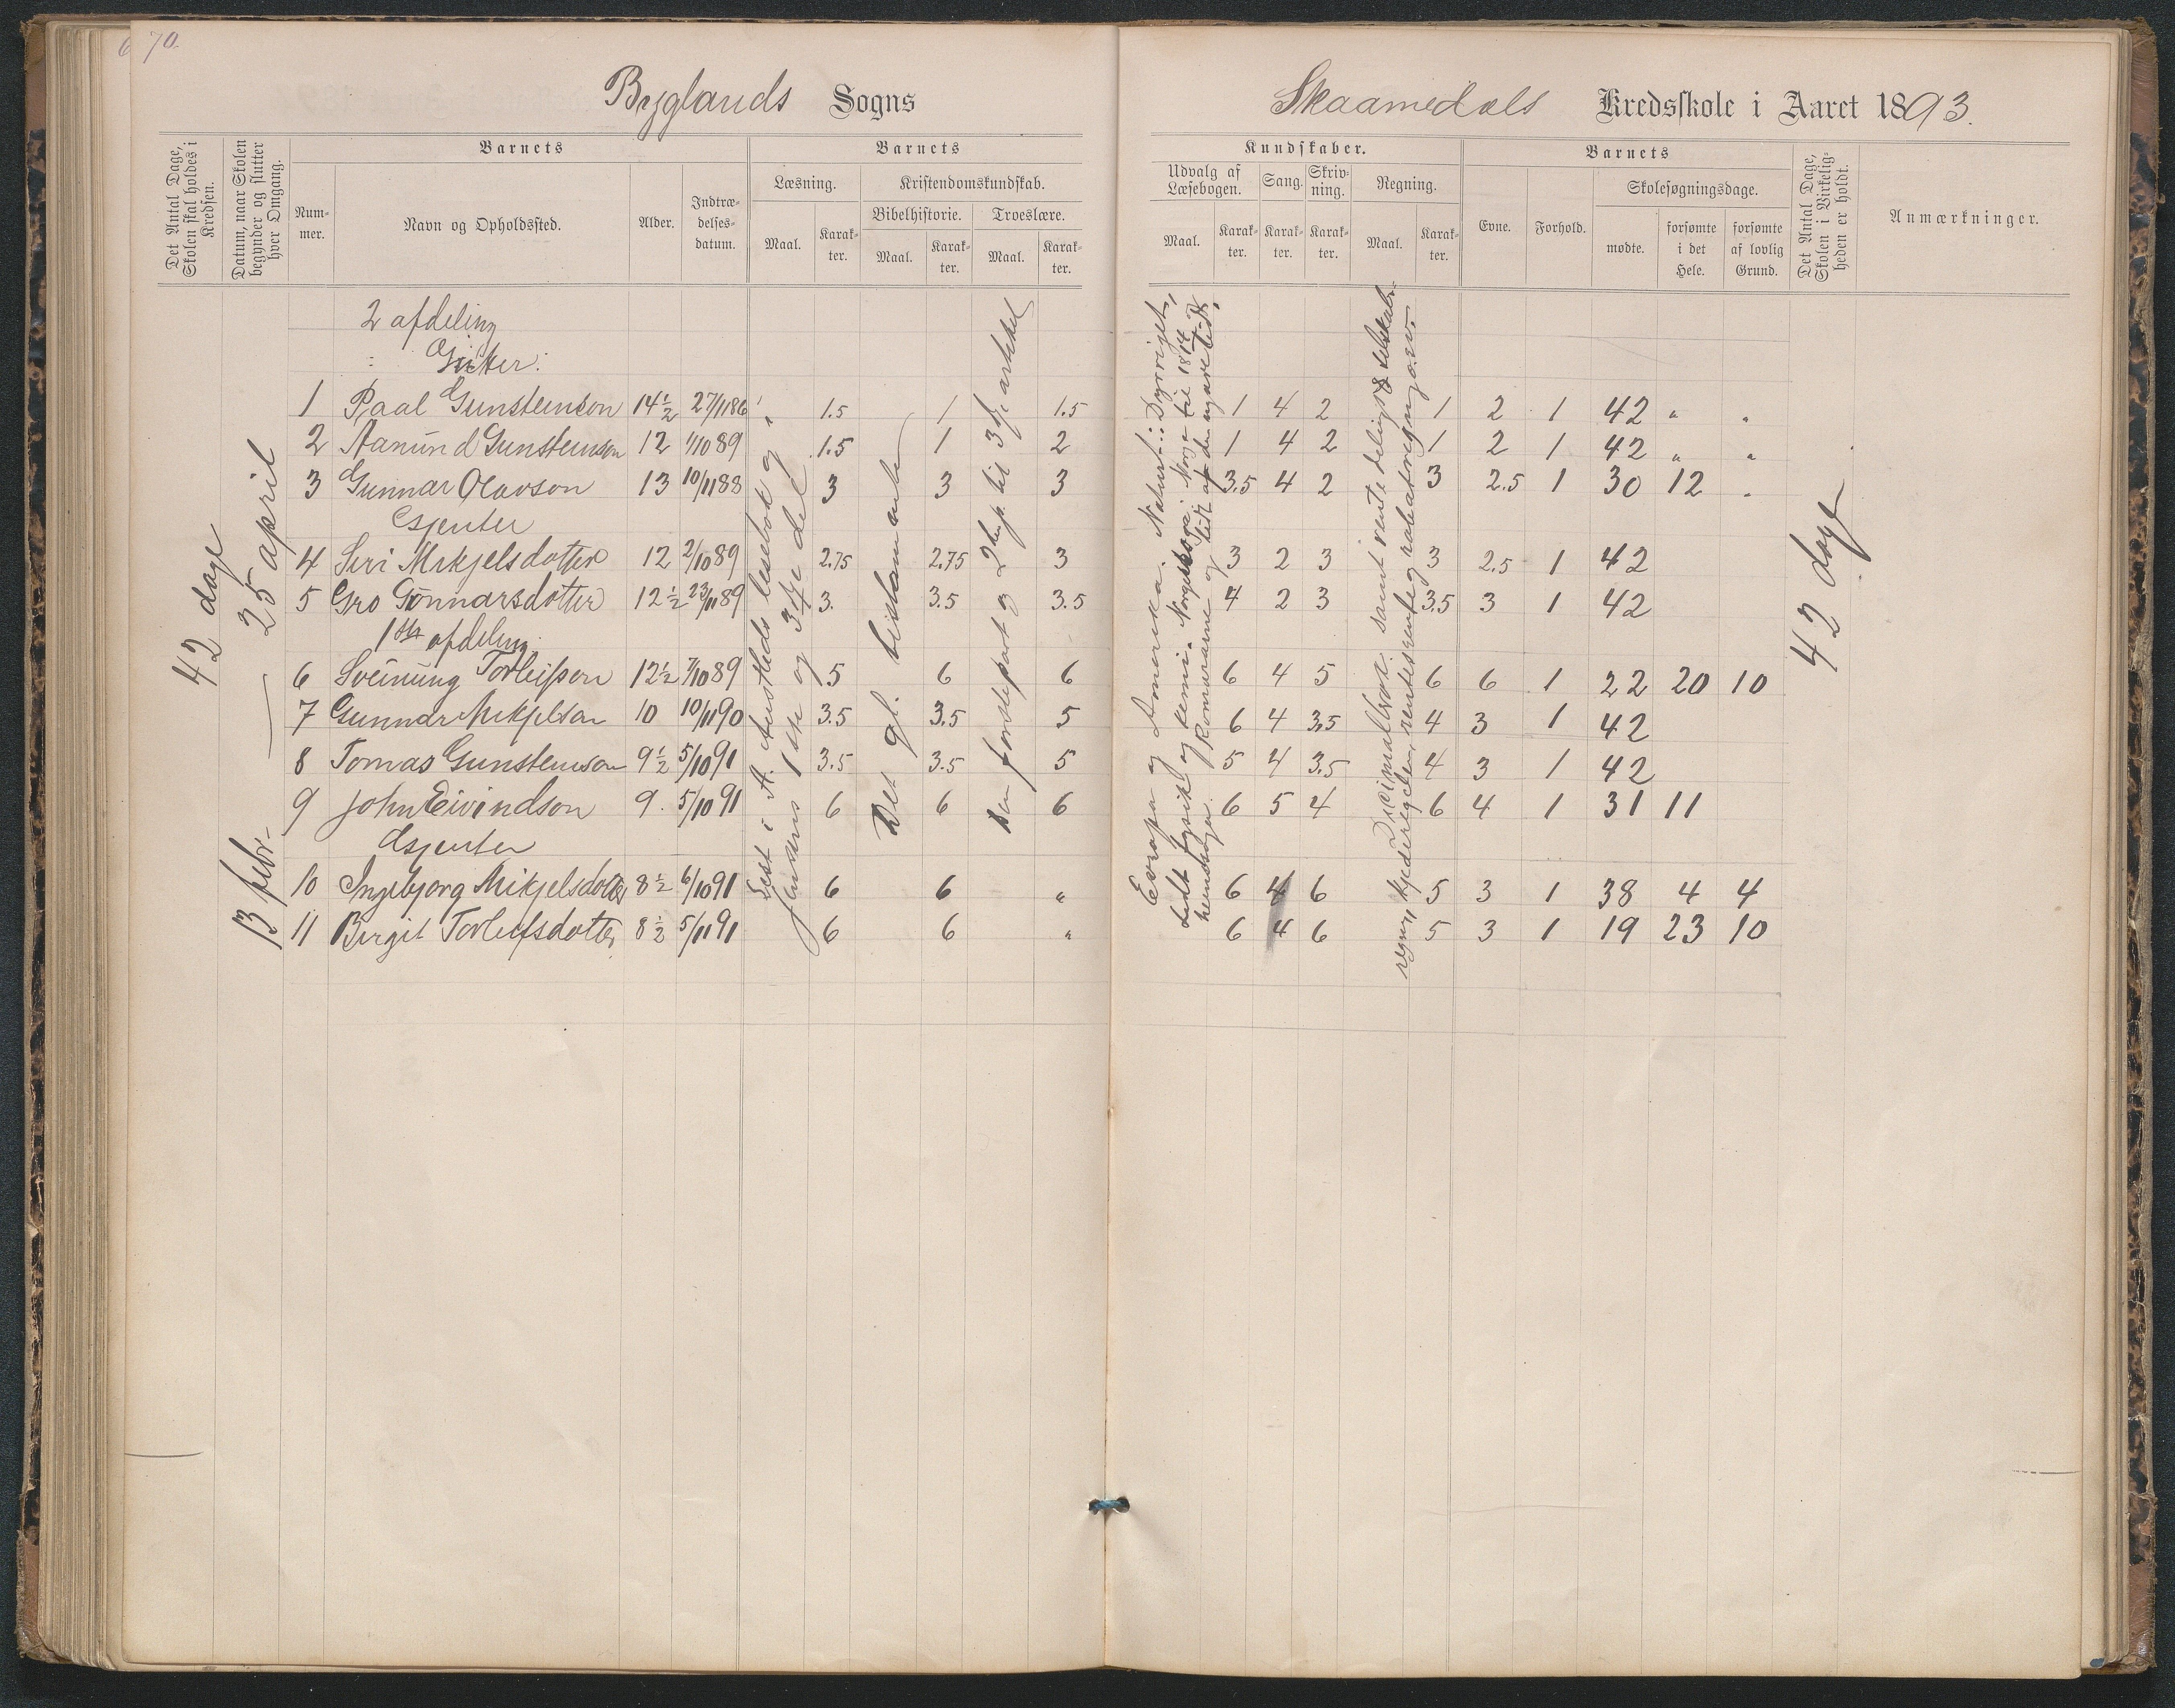 70.
Byglands Sogns
Skaamedals Kredsskole i Aaret 1893.
Det Antal Dage, Skolen skal holdes i Kredsen.
Datum, naar Skolen begynder og slutter hver Omgang.
Barnets
Nummer.
Navn og Opholdssted.
Alder.
Indtrædelsesdatum.
Barnets
Læsning.
Maal.
Karakter.
Kristendomskundskab.
Bibelhistorie.
Maal.
Karakter.
Troeslære.
Maal.
Karakter.
Kundskaber.
Udvalg af Læsebogen.
Maal.
Karakter.
Sang.
Karakter.
Skrivning.
Karakter.
Regning.
Maal.
Karakter.
Barnets
Evne.
Forhold.
Skolesøgningsdage.
mødte.
forsømte i det Hele.
forsømte af lovlig Grund.
Det Antal Dage, Skolen i Virkeligheden er holdt.
Anmærkninger.
42 dage
13 febr. — 25 april
2 afdeling
Gutter:
1 Paal Gunsteinson 14½ 27/1186 1.5 1 1.5 1 4 2 1 2 1 42 " "
2 Aanund Gunsteinson 12 1/1089 1.5 1 2 1 4 2 1 2 1 42 " "
3 Gunnar Olavson 13 10/1188 3 3 3 3.5 4 2 3 2.5 1 30 12 "
Gjenter
4 Siri Mikjelsdotter 12 2/1089 2.75 2.75 3 3 2 3 3 2.5 1 42
5 Gro Gunnarsdotter 12½ 23/1189 3. 3.5 3.5 4 2 3 3.5 3 1 42
1ste afdeling
6 Sveinung Torleifson 12½ 7/1089 5 6 6 6 4 5 6 6 1 22 20 10
7 Gunnar Mikjelson 10 10/1190 3.5 3.5 5 6 4 3.5 4 3 1 42
8 Tomas Gunsteinson 9½ 5/1091 3.5 3.5 5 5 4 3.5 4 3 1 42
9 John Eivindson 9. 5/1091 6 6 6 6 5 4 6 4 1 31 11
Gjenter
10 Ingebjorg Mikjelsdotter 8½ 6/1091 6 6 " 6 4 6 5 3 1 38 4 4
11 Birgit Torleifsdotter 8½ 5/1191 6 6 " 6 4 6 5 3 1 19 23 10
Lest i A. Austlids lesebok og i
Jensens 1ste og 3dje del
Det gl. testamente
Den fordsepart og 2 hp. til 3dje artikel
Evropa og Amerika. Naturf.: Dyreriget,
Lidt fysik og kemi. Norges soge: Norge til 1814
Romerarne og lidt af den nyare tid.
Decimalbrøk samt rente deling & selskabs-
regn, kjederegelen, rentesrente og rabatregning o.s.v.
42 dage